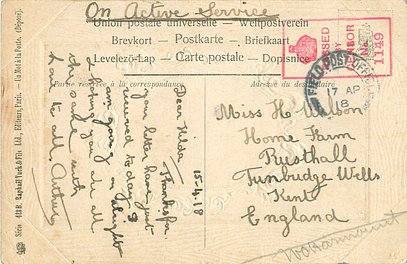 On Active Service
Union postale universelle — Weltpostverein
Brevkort — Postkarte — Briefkaart
Levelező-Lap — Carte postale — Dopisnice
PASSED
BY
CENSOR
No.
1149
FIELD POST OFFICE
17 AP
18
Partie réservée à la correspondance.
Adresse du destinataire
15-4-18
Dear Hilda
Thanks for
your letter have just
received to day. I
am going on alright
hoping you are all
the same with
love to all. Arthur
Miss H Wilson
Home Farm
Rusthall
Tunbridge Wells
Kent
England
Série 418. Raphael Tuck & Fils Ltd., Editeurs, Paris. — Un Mot à la Poste. (Déposé).